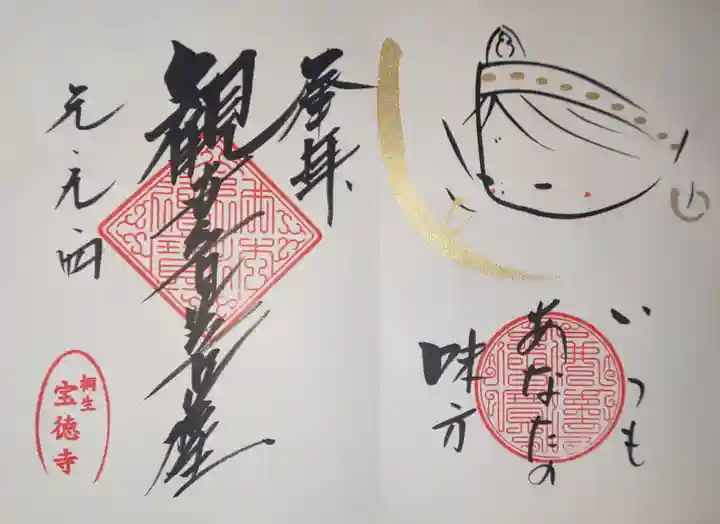 いつも
あなたの
味方
登拝
観世音菩薩
元.元.四
桐生
宝徳寺